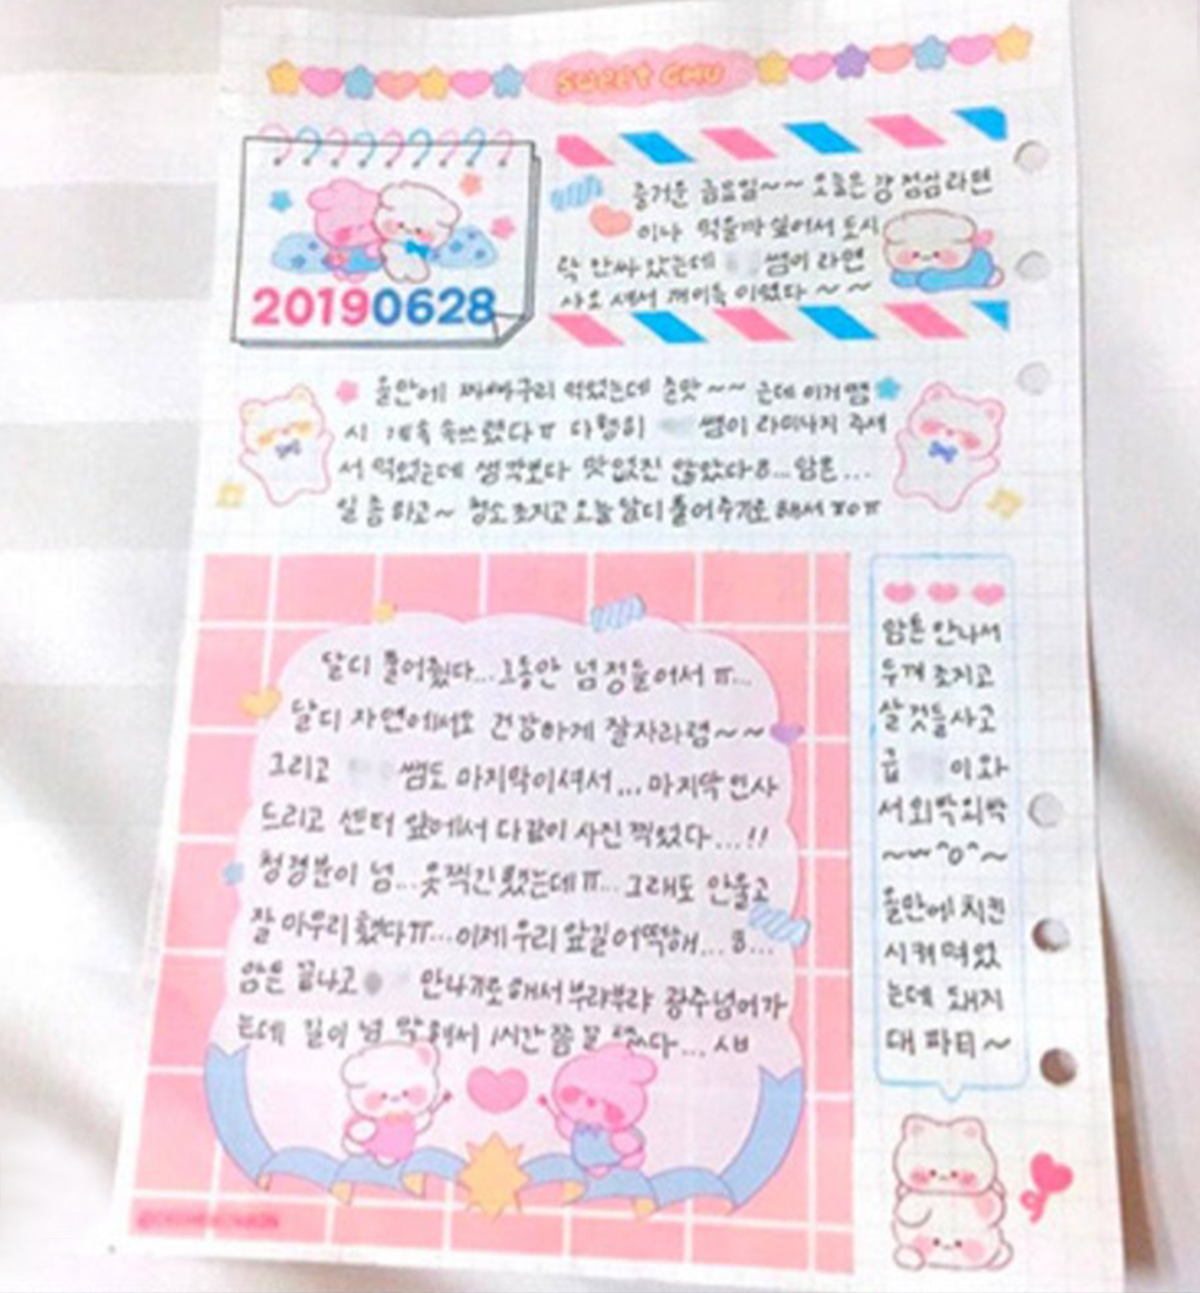 SWEET CHU
20190628
즐거운 금요일~~ 오늘은 걍 점심 라면
이나 먹을까 싶어서 도시
락 안싸 갔는데 쌤이 라면
사오셔서 개이득 이였다~~
올만에 짜빠구리 먹었는데 존맛~~ 근데 이거땜
시 계속 속쓰렸다ㅠ 다행히 쌤이 라미나지 주셔
서 먹었는데 생각보다 맛없진 않았다ㅎ...암튼...
일 좀 하고~ 청소 조지고 오늘 달디 풀어주기로 해서 ㅠ0ㅠ
달디 풀어줬다...그동안 넘 정들어서 ㅠ...
달디 자연에서도 건강하게 잘자라렴~~
그리고 쌤도 마지막이셔서...마지막 인사
드리고 센터 앞에서 다같이 사진 찍었다...!!
청경분이 넘...웃찍긴 했는데ㅠ...그래도 안울고
잘 마무리 했다ㅠ...이제 우리 앞길 어떡해...ㅎ...
암튼 끝나고 만나기로 해서 부랴부랴 광주넘어가
는데 길이 넘 막혀서 1시간 쫌 다...ㅅㅂ
암튼 만나서
두끼 조지고
살것들 사고
급 이와
서 외박외박
~w^0^~
올만에 치킨
시켜먹었
는데 돼지
대파티~